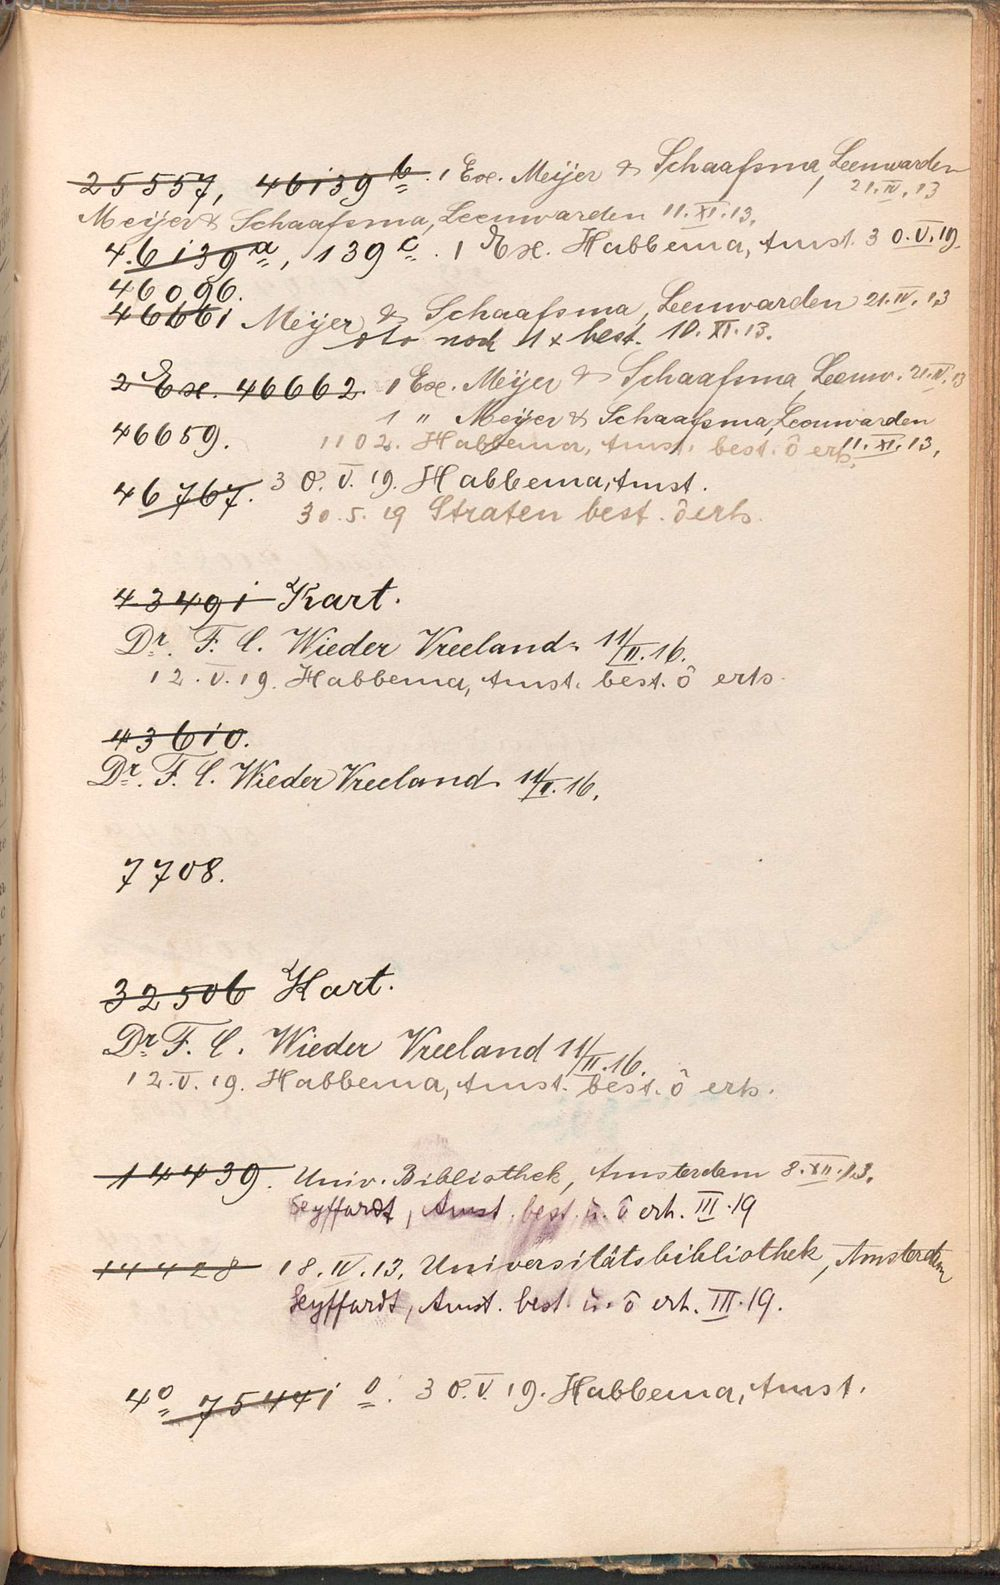 25557, 46139 b. 1 Ex. Meijer & Schaafsma, Leeuwarden
21.IV.13
Meijer & Schaafsma, Leeuwarden 11.XI.13.
46139 a, 139 c. 1 Ex. Habbema, Amst. 30.V.19.
46096.
46661 Meijer & Schaafsma, Leeuwarden 21.IV.13
dto noch 1 x best. 10.XI.13.
2 Ex. 46662. 1 Ex. Meijer & Schaafsma, Leeuw. 21.IV.13
1 " Meijer & Schaafsma, Leeuwarden
11.XI.13.
46659. Habbema, Amst. best. ô erh.
46767. 30.V.19. Habbema, Amst.
30.5.19 Straten best. ô erh.
43491 Kart.
Dr. F. C. Wieder Vreeland 11/II.16.
12.V.19. Habbema, Amst. best. ô erh.
43610.
Dr. F. C. Wieder Vreeland 11/II.16.
7708.
32506 Kart.
Dr. F. C. Wieder Vreeland 11/II.16.
12.V.19. Habbema, Amst. best. ô erh.
14439. Univ. Bibliothek, Amsterdam 8.XII.13.
Seyffardt, Amst. best. u. ô erh. III.19
14428 18.IV.13. Universitätsbibliothek, Amsterdam
Seyffardt, Amst. best. u. ô erh. III.19.
4o 75441 o. 30.V.19. Habbema, Amst.